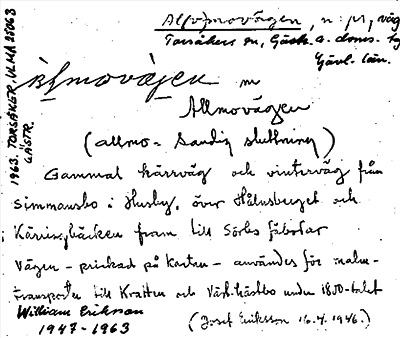 Al(v)movägen, n. pl., väg
Torsåkers sn, Gästr. o. doms. hg
Gävl. län.
1963. TORSÅKER. ULMA 25063
GÄSTR.
m
Allmovägen
(allmo- Sandig sluttning)
Gammal kärrväg och vinterväg från
Simmansbo i Husby, över Hålnsberget och
bäcken fram till Sörbs fäbodar
Vägen - prickad på kartan - användes för malm-
transporter till Kratten och Väst. hästbo under 1800-talet
William Eriksson
1947-1963
(Josef Eriksson 16.4.1946.)